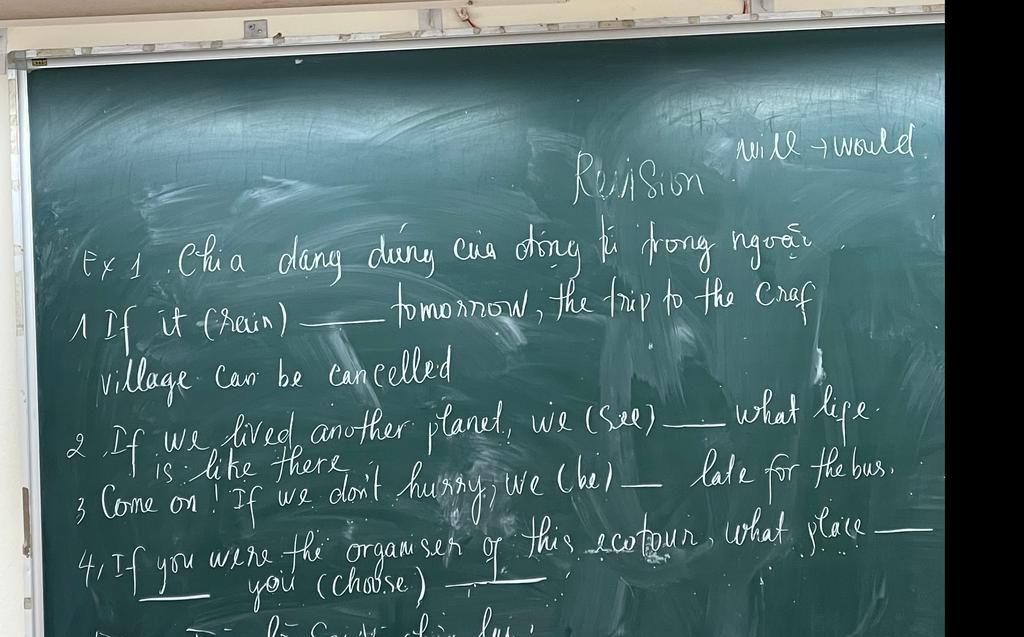 will → would
Revision
Ex 1. Chia dạng đúng của động từ trong ngoặc
1 If it (rain) ____ tomorrow, the trip to the craf
village can be cancelled
2. If we lived another planet, we (see) ____ what life
is like there
3 Come on! If we don't hurry, we (be) ____ late for the bus.
4, If you were the organiser of this ecotour, what place ____
____ you (choose) ____